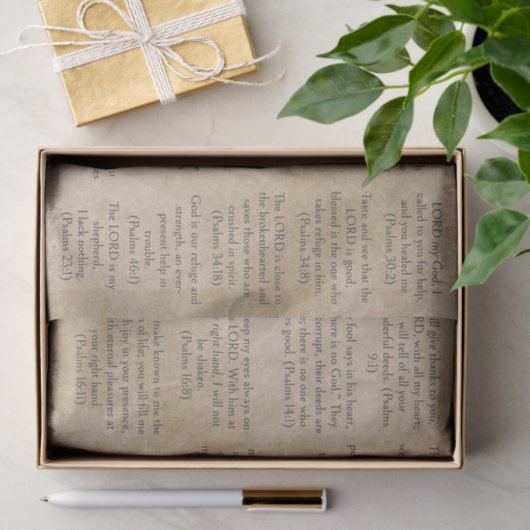 LORD my God, I
called to you for help,
and you healed me
(Psalms 30:2)
Taste and see that the
LORD is good;
blessed is the one who
takes refuge in him.
(Psalms 34:8)
The LORD is close to
the brokenhearted and
saves those who are
crushed in spirit.
(Psalms 34:18)
God is our refuge and
strength, an ever-
present help in
trouble.
(Psalms 46:1)
The LORD is my
shepherd,
I lack nothing.
(Psalms 23:1)
give thanks to you,
RD, with all my heart;
will tell of all your
nderful deeds. (Psalms
9:1)
fool says in his heart,
here is no God." They
corrupt, their deeds are
e; there is no one who
es good. (Psalms 14:1)
eep my eyes always on
e LORD. With him at
right hand, I will not
be shaken.
(Psalms 16:8)
make known to me the
of life; you will fill me
h joy in your presence,
ith eternal pleasures at
your right hand.
(Psalms 16:11)